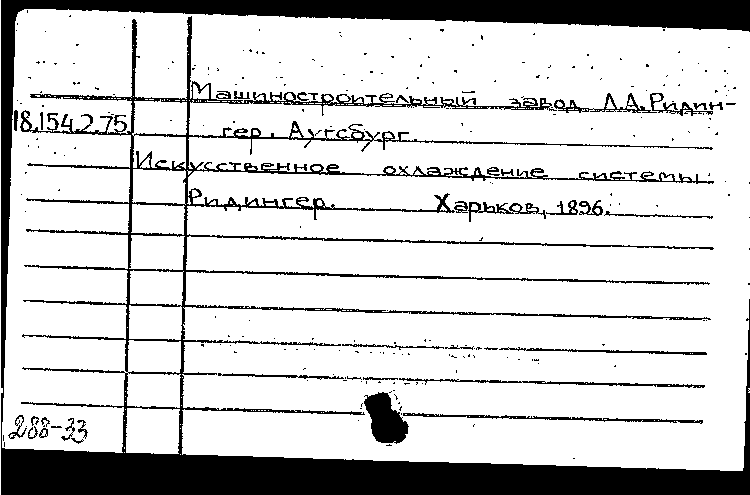 Машиностроительный завод Л.А.Ридин-
18.154.2.75 гер. Аугсбург.
Искусственное охлаждение системы
Ридингер. Харьков, 1896.
288-33